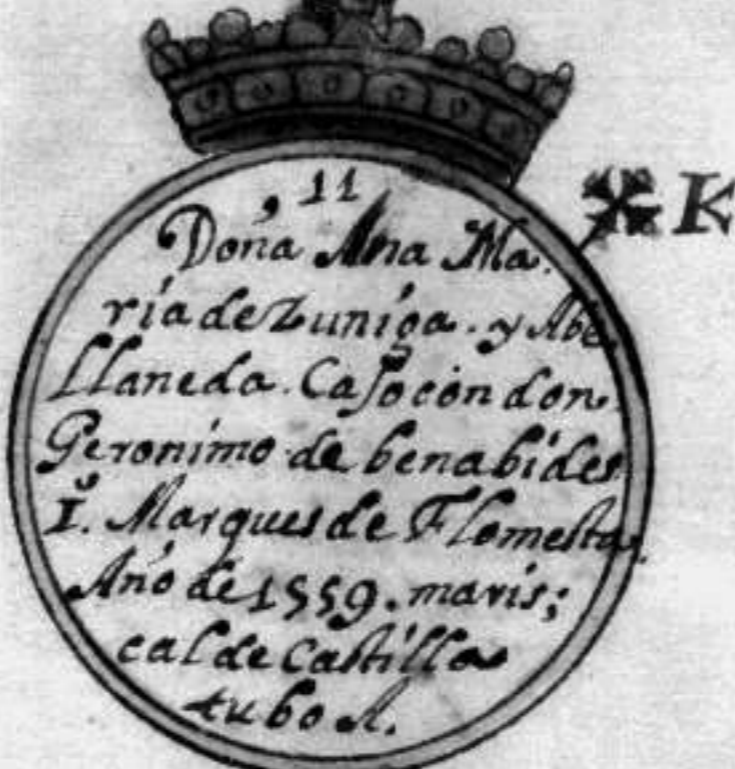 11
Doña Ana Ma.
ria de Zuniga. y Abe
llaneda. Caso con don
Geronimo de benabides
I.º Marques de Flomesta.
Año de 1559. maris;
cal de Castilla
tubo A.
K